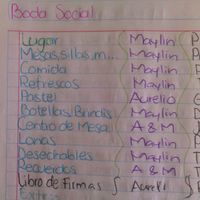 Boda Social
Lugar Maylin P
Mesas, sillas, m... Maylin
Comida Maylin
Refrescos Maylin
Pastel Aurelio
Botellas/Brindis Maylin
Centro de Mesa A & M
Lonas Maylin
Desechables Maylin
Recuerdos A & M
Libro de Firmas Aurelio